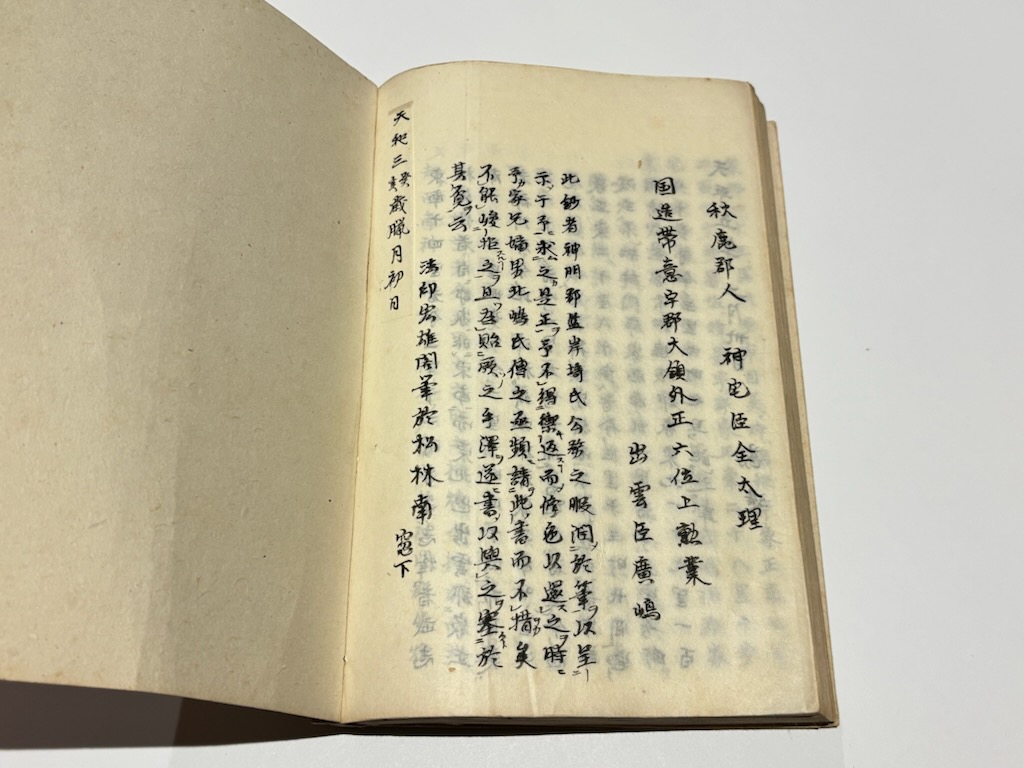 秋鹿郡人 神宅臣全太理
国造帯意宇郡大領外正六位上勲業
出雲臣廣嶋
此鈔者神門郡監岸埼氏公務之暇潤於筆以呈
示于予求之是正予不得禦返而修色以還之時
予家兄嫡男北嶋氏傳之亟頻請此書而不措矣
不能峻拒之且爲貽厥之手澤遂書以與之塞於
其筧云
天和三癸亥歳臘月初日
法印宏雄閣筆於松林南窓下